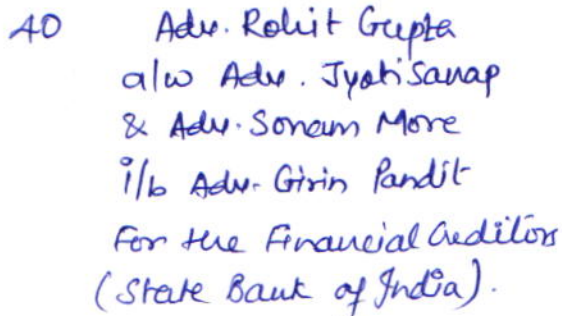 40 Adv. Rohit Gupta
a/w Adv. Jyoti Sanap
& Adv. Sonam More
i/b Adv. Girin Pandit
For the Financial Creditors
(State Bank of India).